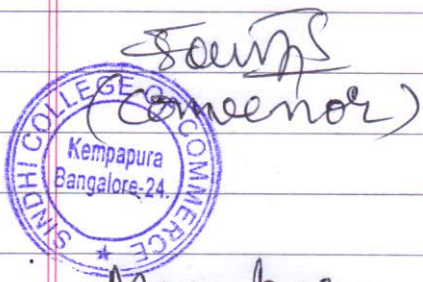 (Convenor)
SINDHI COLLEGE OF COMMERCE
Kempapura
Bangalore-24.